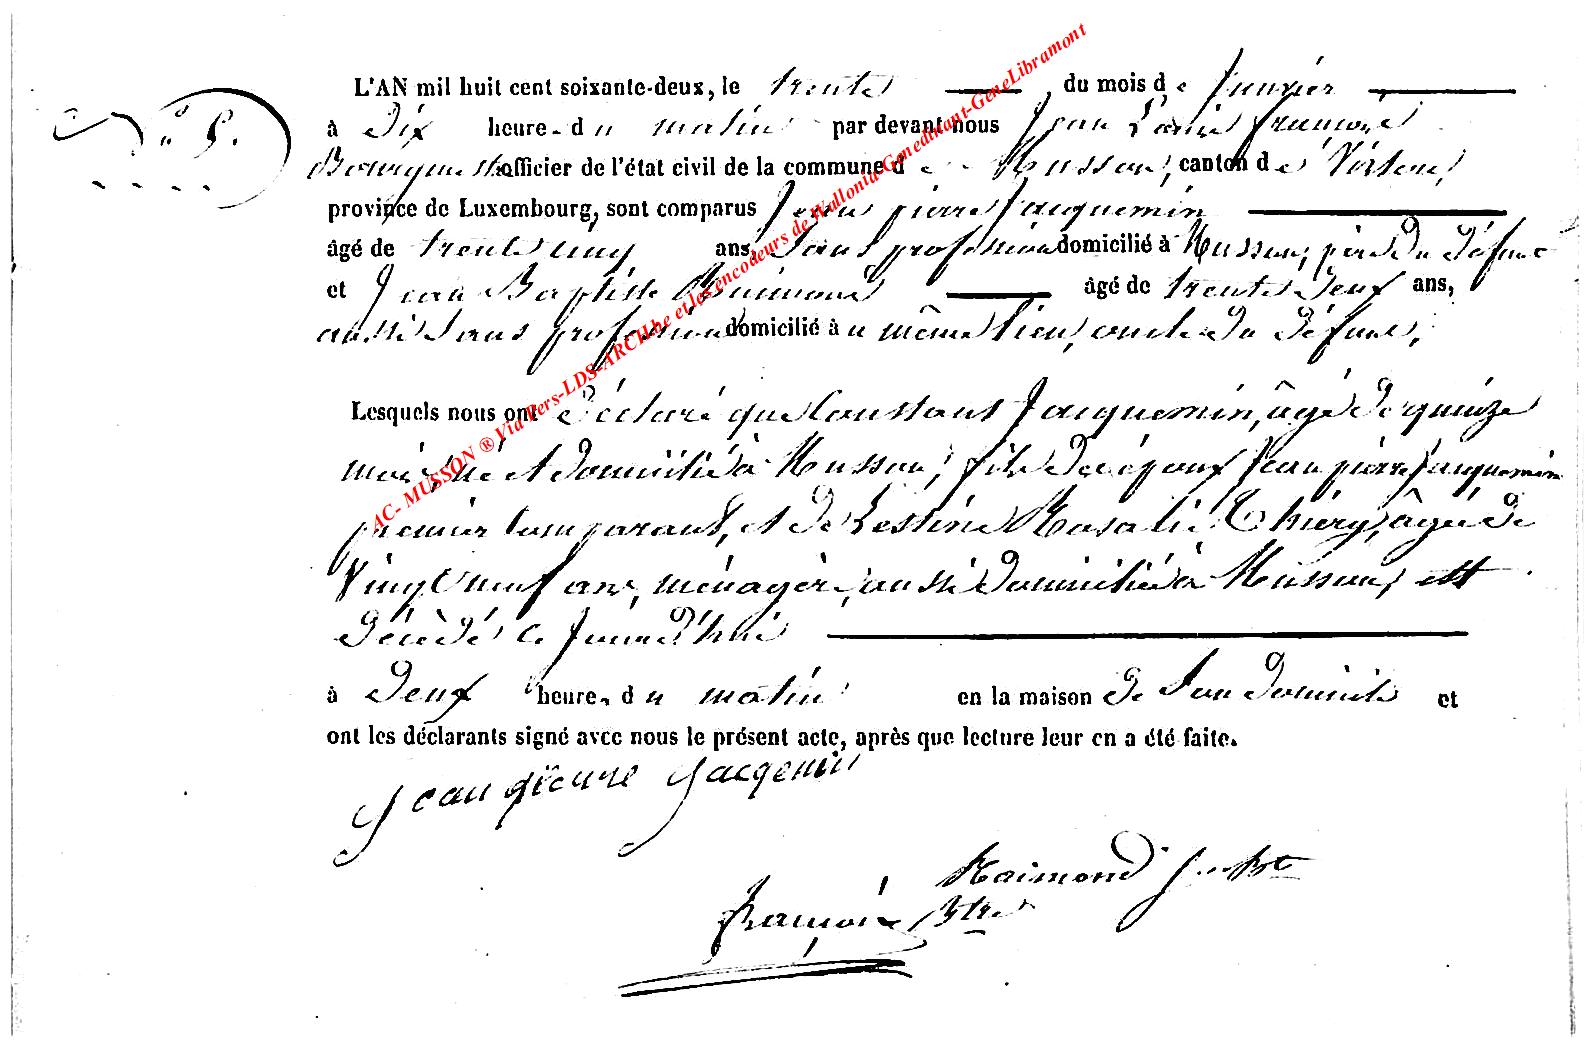 N° 5.
L'AN mil huit cent soixante-deux, le trente du mois de Janvier
à Dix heure. du matin par devant nous Jean Louis François
Bourgmestre officier de l'état civil de la commune de Musson, canton de Virton,
province de Luxembourg, sont comparus Jean pierre Jacquemin
âgé de trente cinq ans, Sans profession domicilié à Musson, père du défunt
et Jean Baptiste Raimond âgé de trente deux ans,
aussi Sans profession domicilié au même lieu, oncle du Défunt,
Lesquels nous ont Déclaré que Constant Jacquemin, âgé de quinze
mois, né et domicilié à Musson, fils des époux Jean pierre Jacquemin
premier Comparant, et de Rosalie Thiery, âgée de
Vingt neuf ans, ménagère, aussi domiciliée à Musson, est
Décédé ce Jourd'hui
à Deux heure. du matin en la maison de Son domicile et
ont les déclarants signé avec nous le présent acte, après que lecture leur en a été faite.
Jean pierre Jacqemin
Raimond J Bte
François Btre
AC- MUSSON ® Via Vers-LDS-ARCH.be et les encodeurs de Wallonia-Genedinant-GeneLibramont